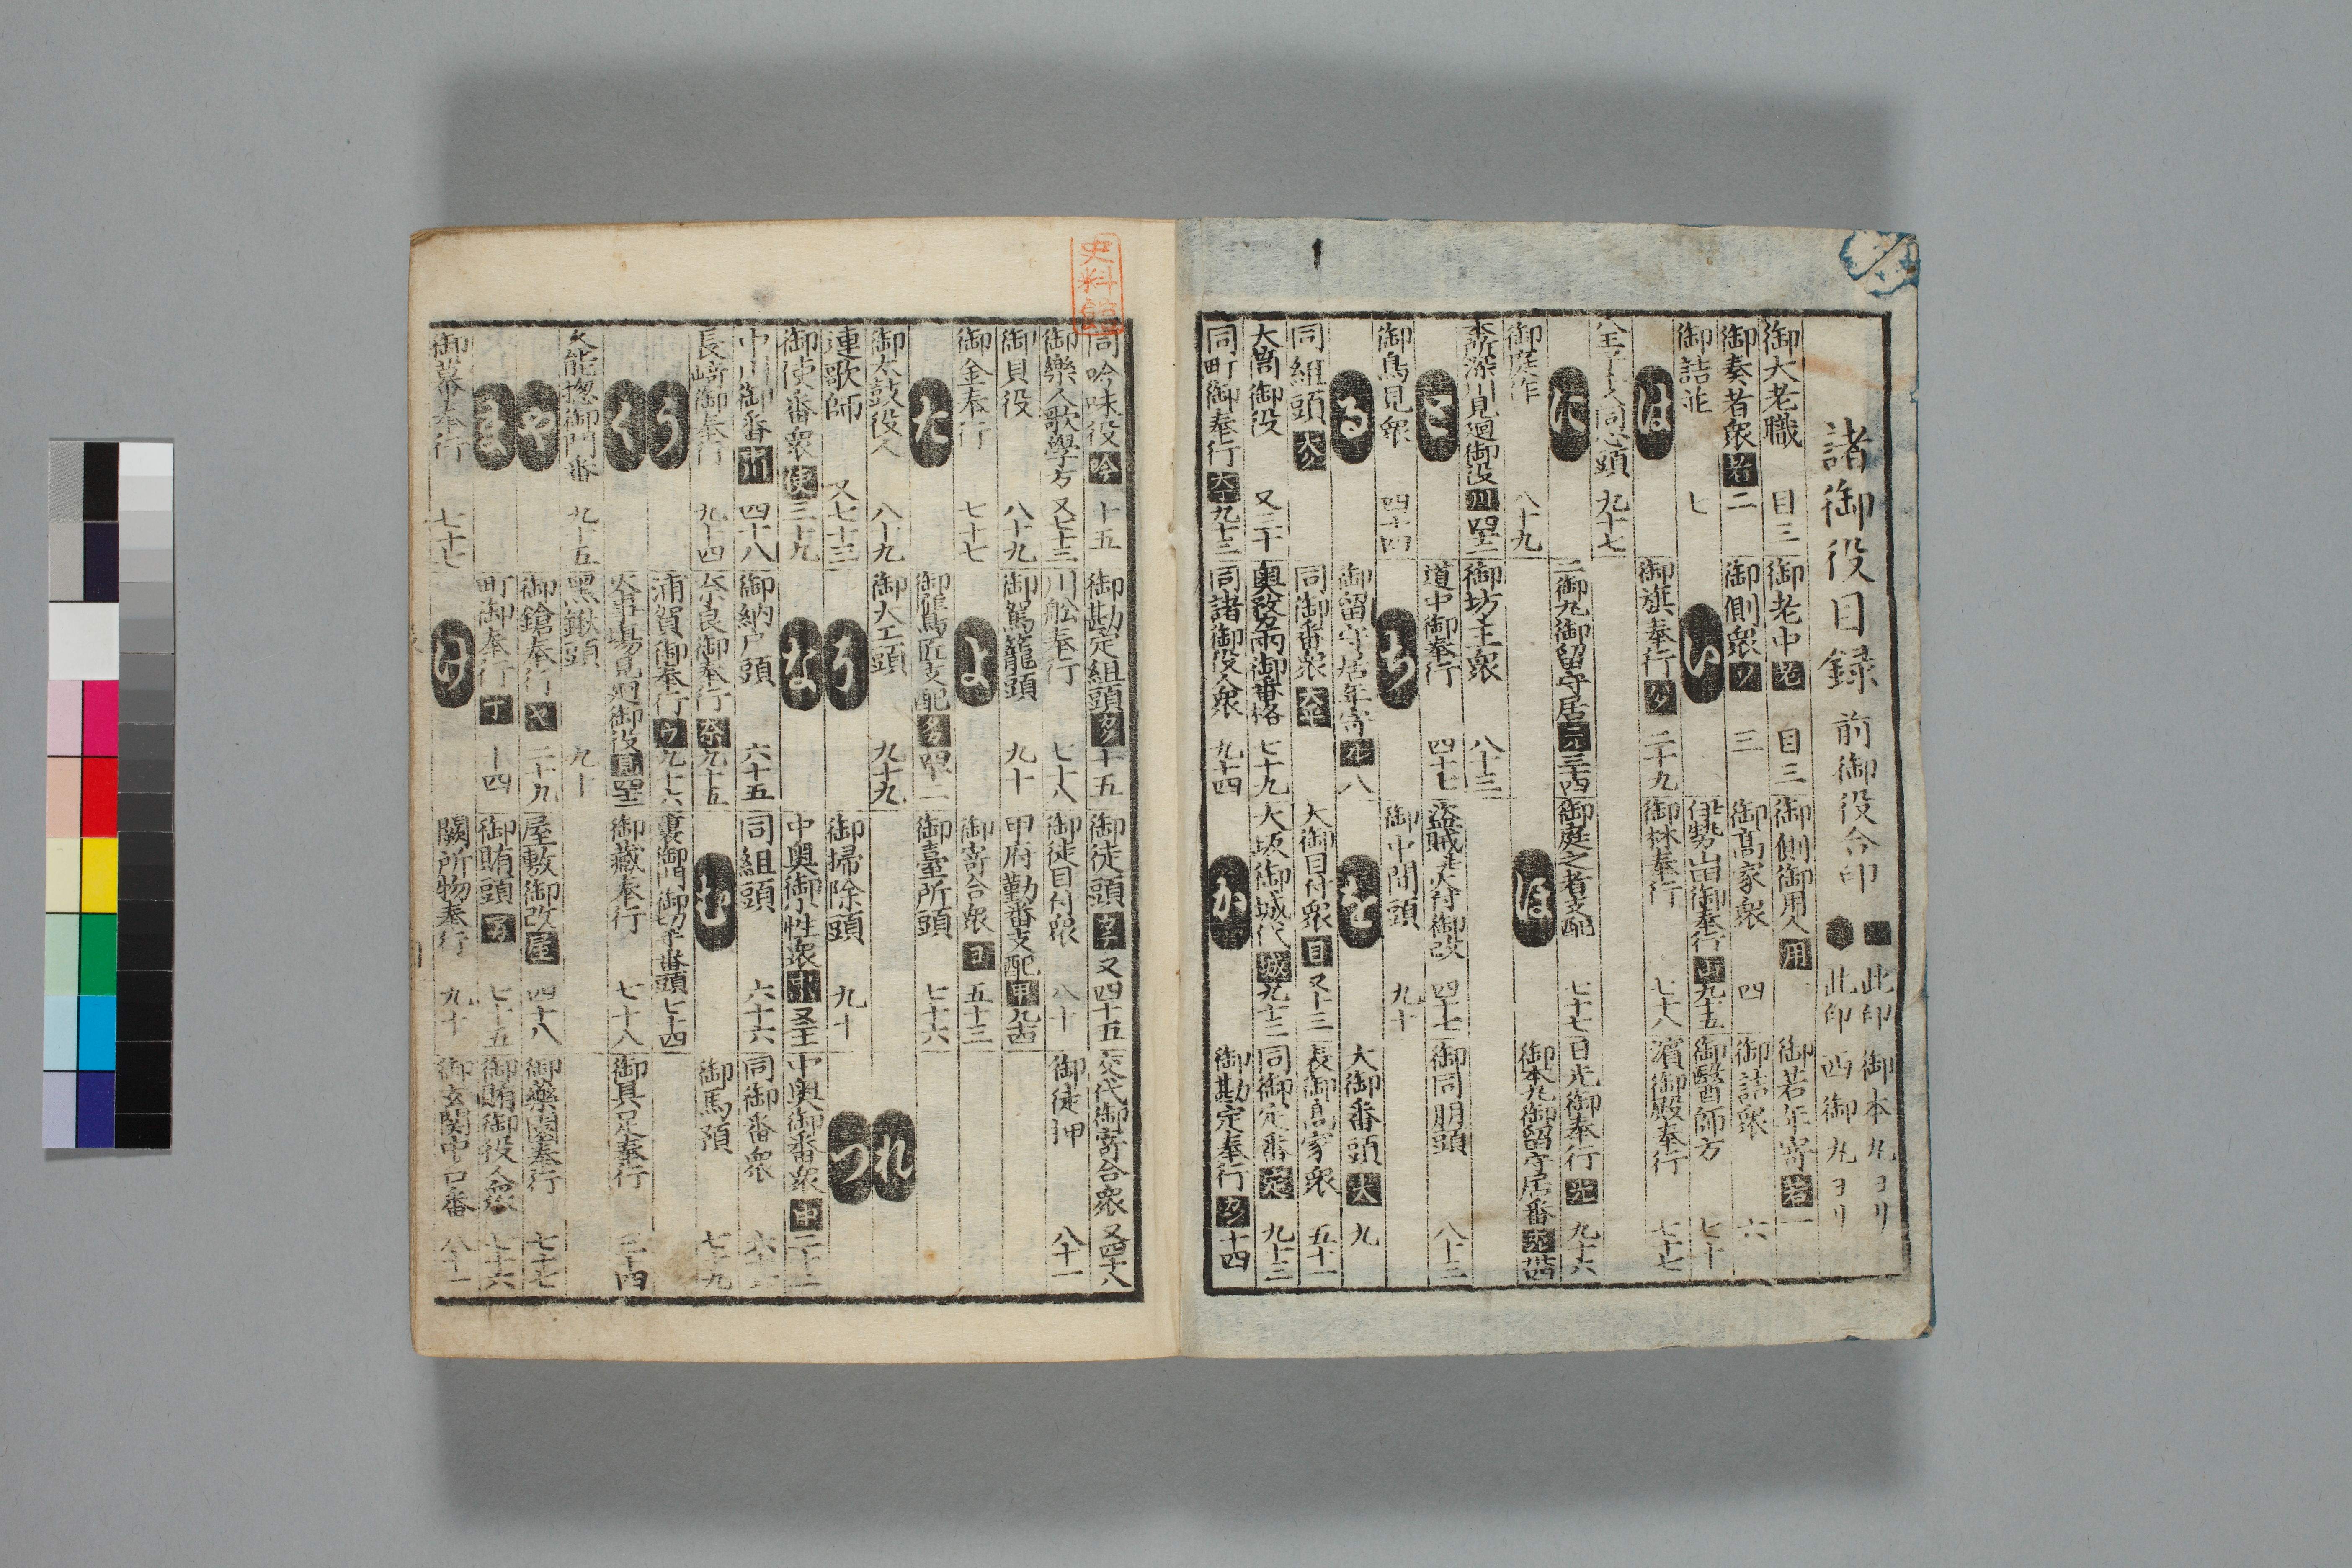 諸御役目録
前御役合印
此印 御本丸ヨリ
此印 西御丸ヨリ
御大老職 目三
御老中 老 目三
御側御用人 用
御若年寄 若 一
御奏者衆 者 二
御側衆 ソ 三
御高家衆 四
御詰衆 六
御詰並 七
い
伊勢山田御奉行 山 九十五
御醫師方 七十
は
御旗奉行 ハタ 二十九
御林奉行 七十八
濱御殿奉行 七十七
八王子千人同心頭 九十七
に
二御丸御留守居 二丸 三十四
御庭之者支配 七十七
日光御奉行 光 九十六
御庭作 八十九
ほ
御本丸御留守居番
本所深川見廻御役 川
御坊主衆 八十三
と
道中御奉行 四十七
盗賊火付御改 四十七
御同朋頭 八十二
御鳥見衆 四十四
ち
御中間頭 九十
る
御留守居年寄 八
を
大御番頭 大 九
同組頭
同御番衆
大御目付衆 目 又十三
表御高家衆 五十一
大筒御役 又二十
奥詰両御番格 七十九
大坂御城代 城 九十三
同御定番 定 九十三
同町御奉行 九十三
同諸御役人衆 九十四
か
御勘定奉行 カン 十四
同吟味役 吟 十五
御勘定組頭 カク 十五
御徒頭 又四十五
交代御寄合衆 又四十八
御樂人歌學方 又七十三
川舩奉行 七十八
御徒目付衆 八十
御徒押 八十一
御貝役 八十九
御駕籠頭 九十
甲府勤番支配 甲
御金奉行 七十七
よ
御寄合衆 ヨ 五十三
た
御鷹匠支配
御臺所頭 七十六
御太鼓役人 八十九
御大工頭 九十九
れ
連歌師 又七十三
そ
御掃除頭 九十
つ
御使番衆 使 三十九
な
中奥御小性衆
中奥御番衆 中 二十二
中川御番 四十八
御納戸頭 六十五
同組頭 六十六
同御番衆
長崎御奉行 九十四
奈良御奉行 奈 九十五
む
御馬預 七十九
う
浦賀御奉行 ウ 九十六
裏御門御切手番頭 七十四
く
火事場見廻御役 見
御藏奉行 七十八
御具足奉行 三十四
大筒惣御門番 九十五
黒鍬頭 九十
や
御鎗奉行 ヤ 二十九
屋敷御改 屋 四十八
御藥園奉行 七十七
ま
町御奉行 丁 十四
御賄頭 七十五
御賄御役人衆 七十六
御幕奉行 七十七
け
闕所物奉行 九十
御玄関中口番 八十一
史料館